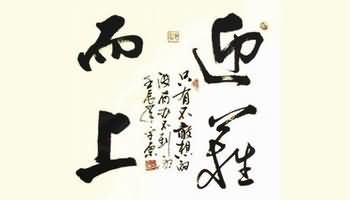 迎難
而上
只有不敢想的
没有办不到的